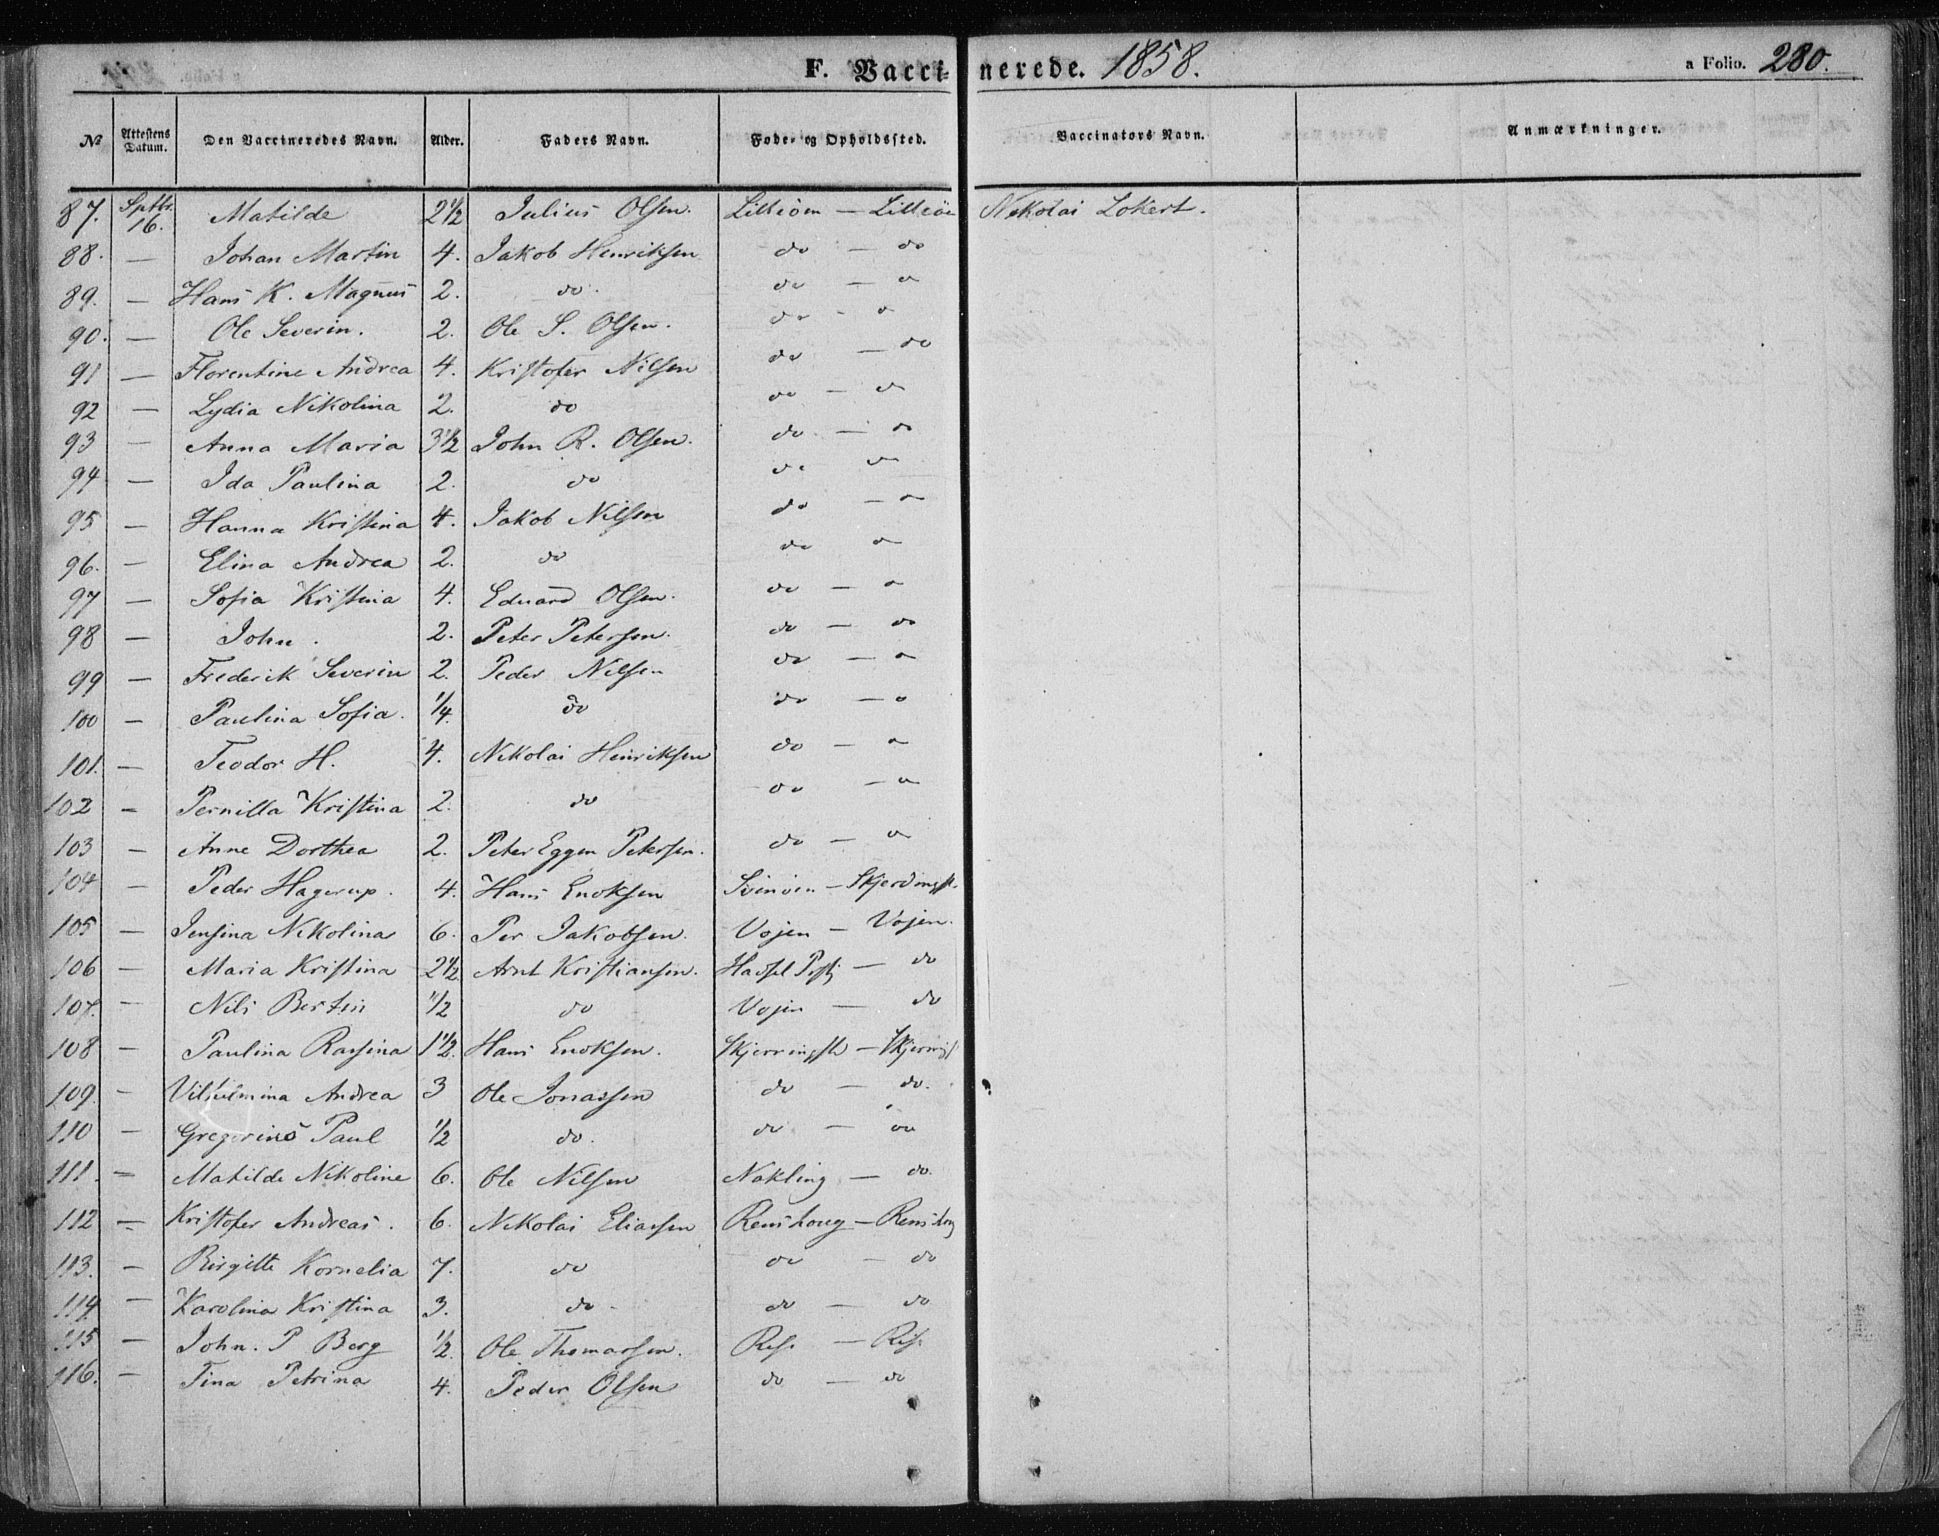 F. Vaccinerede. 1858. a Folio. 280.
№ Attestens Datum. Den Vaccineredes Navn. Alder. Faders Navn. Føde- og Opholdssted. Vaccinators Navn. Anmærkninger.
87. Septbr. 16. Matilde 2½ Julius Olsen. Lilleöen — Nikolai Lokert.
88. — Johan Martin 4. Jakob Henriksen do — do
89. — Hans K. Magnus 2. do. do — do
90. — Ole Severin. 2. Ole S. Olsen. do - do
91 — Florentine Andrea 4. Kristofer Nilsen do — do
92 — Lydia Nikolina 2. do do — do
93 — Anna Maria 3½ John R. Olsen. do — do
94 — Ida Paulina 2. do do do
95 — Hanna Kristina 4. Jakob Nilsen do — do
96. — Elina Andrea 2. do do — do
97 — Sofia Kristina 4. Eduard Olsen. do — do
98 — John. 2. Peter Petersen. do — do
99 — Frederik Severin 2. Peder Nilsen do — do
100 — Paulina Sofia. ¼. do do — do
101. — Teodor H. 4. Nikolai Henriksen do — do
102 — Pernilla Kristina 2. do do — do
103 — Anne Dorthea 2. Peter Eggen Petersen. do — do
104 — Peder Hagerup. 4. Hans Enoksen Svinöen —
105 — Jensina Nikolina 6. Per Jakobsen. Vojen — Vojen.
106 — Maria Kristina 2½ Arnt Kristiansen. — do
107. — Nils Bertin ½ do Vojen — do
108 — Paulina Rasina 1½. Hans Enoksen. —
109. — Vilhelmina Andrea 3 Ole Jonassen do — do.
110 — Gregorius Paul ½ do. do — do
111. — Matilde Nikoline 6. Ole Nilsen Nakling — do.
112 — Kristofer Andreas. 6. Nikolai Eliassen —
113. — Birgitte Kornelia 7. do do — do
114. — Karolina Kristina 3. do - do — do
115 — John. P Berg ½. Ole Thomassen. —
116. — Tina Petrina 4. Peder Olsen do — do